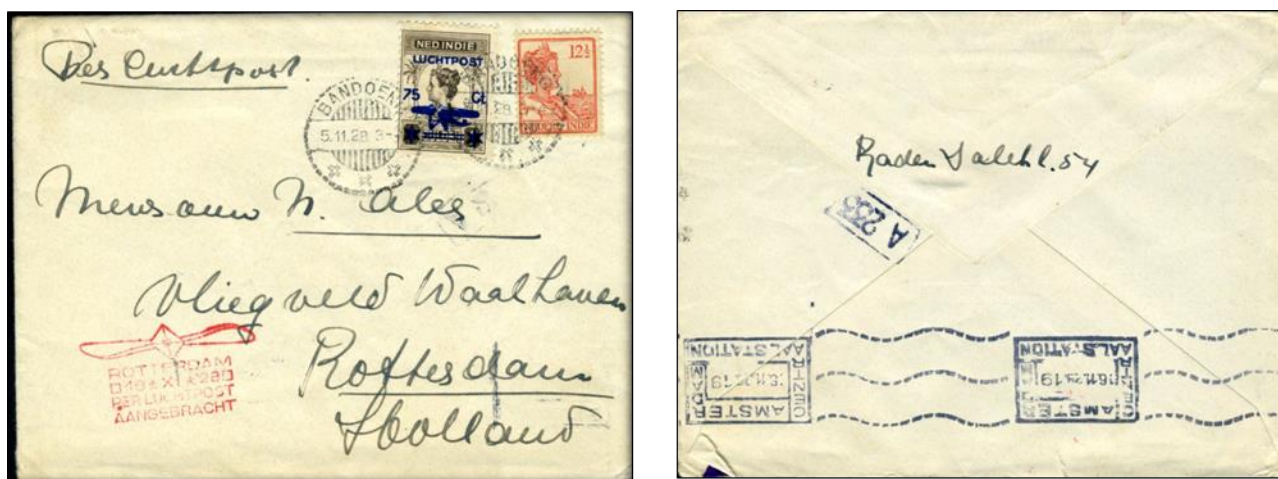 Per Luchtpost.
NED INDIE
LUCHTPOST
75 Ct.
12½
BANDOENG
5.11.28. 3-
Mensouw N. Ales
Vliegveld Waalhaven
Rotterdam
Holland
ROTTERDAM
16 ★ XI ★ 28
PER LUCHTPOST
AANGEBRACHT
Raden Salehl. 54
A 233
AMSTER
DAM
CENTR
AALSTATION
16.11.28.19
AMSTER
DAM
CENTR
AALSTATION
16.11.28.19